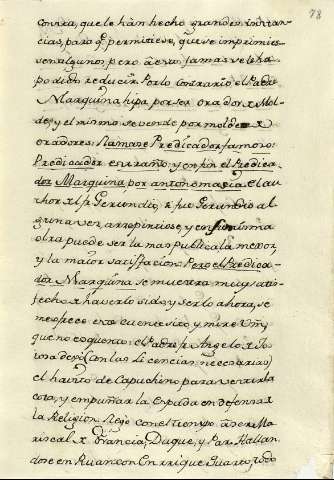 78
contra, que le han hecho grandes instan-
cias, para q.e permitiese, que se imprimies-
sen alguno, pero à esto jamas se le ha
podido reducir. Por lo contrario el Padre
Marquina hipa por ser orador de Mol-
de, y el mismo se vende por molde de
oradores: llamase Predicador famoso:
Predicador extraño: y en fin el Predica-
dor Marquina por antonomasia. El au-
thor de fr. Gerundio, de fue Gerundio al
guna vez, arrepintiose, y en
otra puede ser la mas publica la mejor,
y la maior satisfacion. Pero el Predica-
dor Marquina se muestra muy satis-
fecho de haverlo sido, y serlo ahora, se
me ofrece este cuentecito, y mire Vm.
que no es quento: el Padre fr. Angelo de Jo-
iosa dexó (con las licencias necesarias)
el havito de Capuchino para vestir la
cota, y empuñar la Espada en defensa de
la Religion. llegó con el tiempo à ser Ma-
riscal de Francia, Duque, y Par. Hallan-
dose en Ruan con Enrrique Quarto, todo